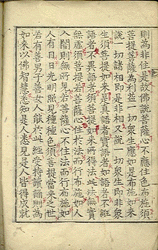 則為非住是故佛說菩薩心不應住色布施須
菩提菩薩為利益一切眾生應如是布施如來
說一切諸相即是非相又說一切眾生即非眾
生須菩提如來是真語者實語者如語者不誑
語者不異語者須菩提如來所得法此法無實
無虛須菩提若菩薩心住於法而行布施如人
入闇則無所見若菩薩心不住法而行布施如
人有目日光明照見種種色須菩提當來之世
若有善男子善女人能於此經受持讀誦則為
如來以佛智慧悉知是人悉見是人皆得成就